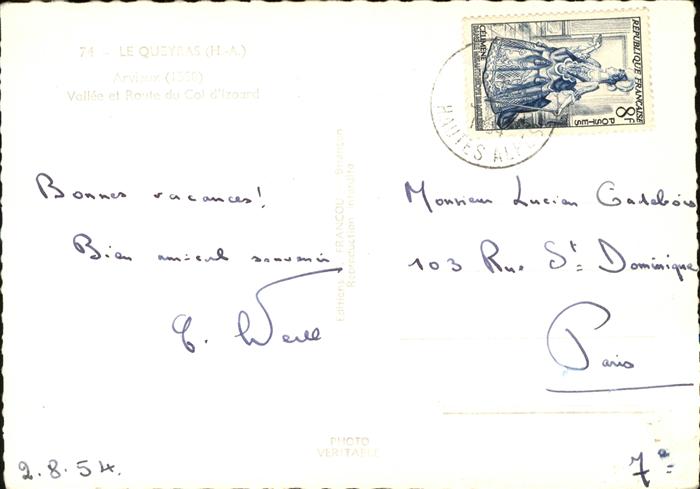 74 - LE QUEYRAS (H.-A.)
Arvieux (1550)
Vallée et Route du Col d'Izoard
Bonnes vacances!
Bien amical souvenir
2.8.54.
Editions FRANCOU Briançon
Reproduction interdite
PHOTO
VERITABLE
REPUBLIQUE FRANÇAISE
8F
POSTES
CÉLIMÈNE
HAUTES ALPES
Monsieur Lucien
103 Rue St= Dominique
Paris
7e=